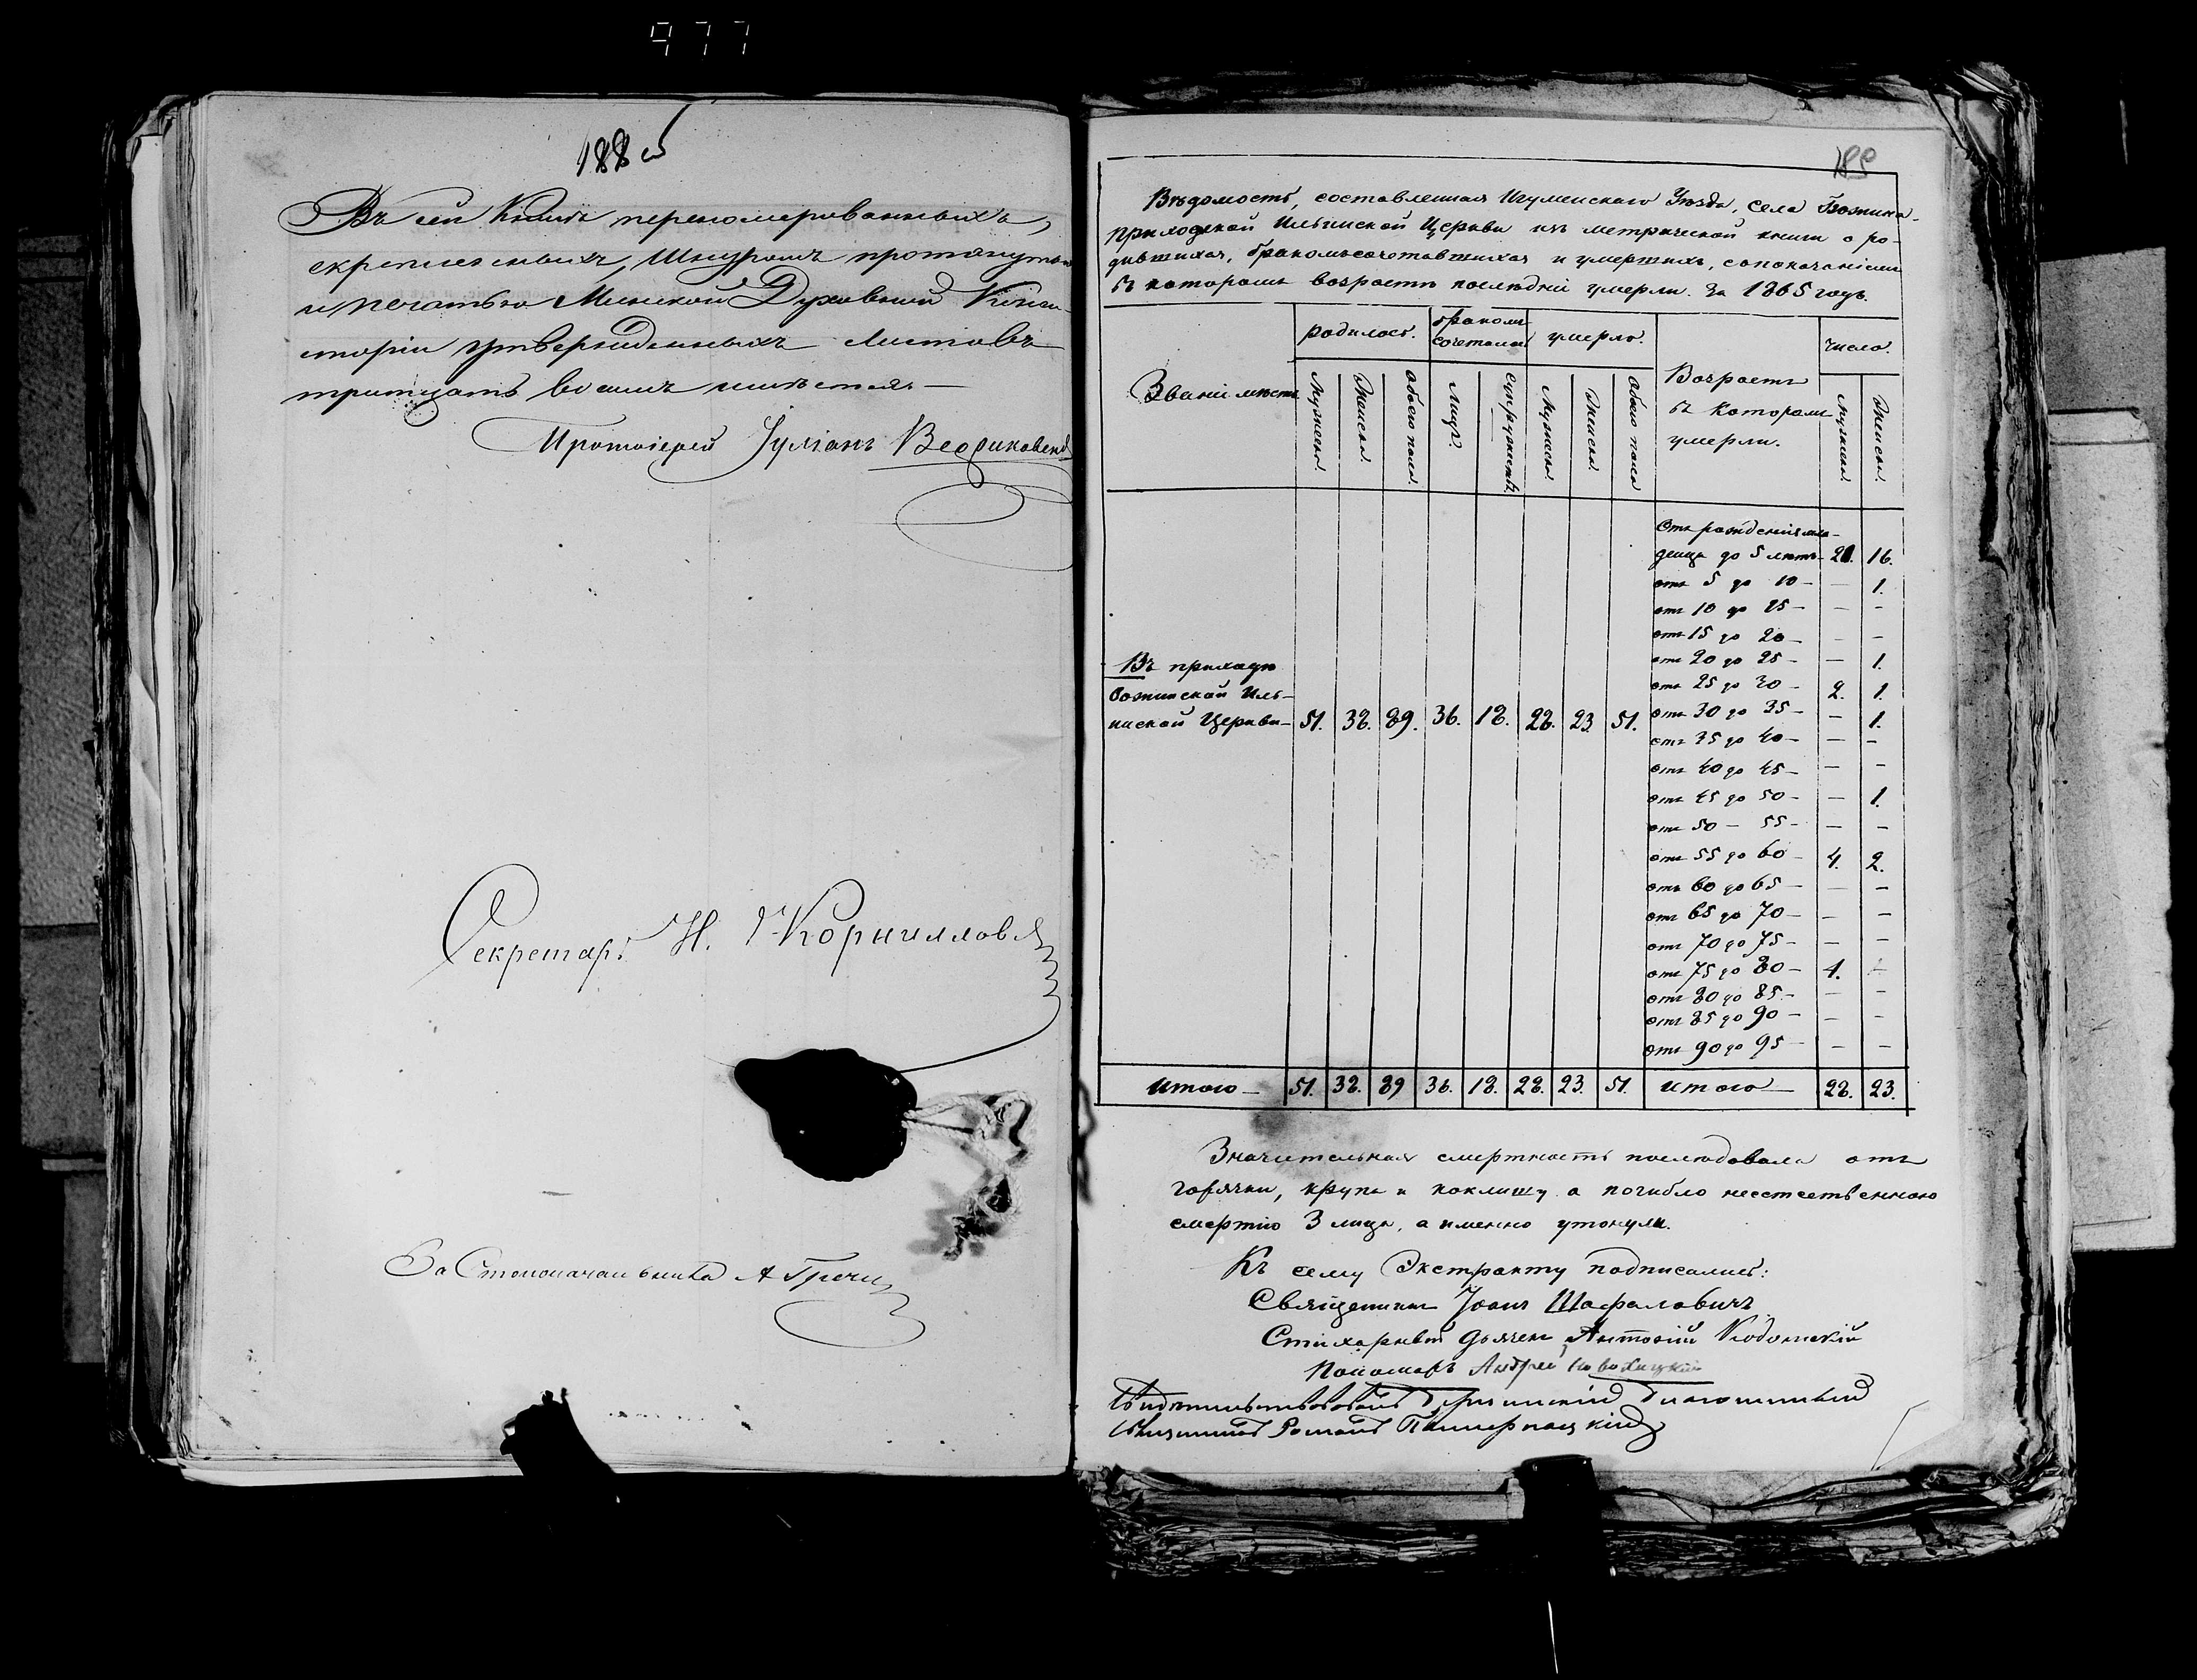 977
188 об
Въ сей Книгѣ перенумерованныхъ,
скрепленныхъ, Шнуромъ протянутыхъ
и печатью Минской Духовной Конси-
сторіи утвержденныхъ Листовъ
тритцать восемь имѣется—
Протоіерей Іуліанъ
Секретарь Н. Корнилловъ
За Столоначальника А Гречи
189
Вѣдомость, составленная Игуменскаго Уѣзда, села Божина
приходской Ильинской Церкви изъ метрической книги о ро-
дившихся, бракомъ сочетавшихся и умершихъ, съ показаніемъ
въ которомъ возрастѣ послѣдніе умерли. За 1865 годъ.
Званіе мѣстъ
родилось.
бракомъ сочетались
умерло.
Возрастъ въ которомъ умерли.
число.
Мужеска. Женска. Обоего пола. Лицъ. Супружествъ. Мужеска. Женска. Обоего пола Мужеска. Женска.
Отъ рожденія мла-
денца до 5 лѣтъ— 21. 16.
отъ 5 до 10 — — 1.
отъ 10 до 15 — — —
отъ 15 до 20 — — —
отъ 20 до 25 — — 1.
отъ 25 до 30 — 2. 1.
отъ 30 до 35 — — 1.
отъ 35 до 40 — — —
отъ 40 до 45 — — —
отъ 45 до 50 — — 1.
отъ 50 — 55 — — —
отъ 55 до 60 — 4. 2.
отъ 60 до 65 — — —
отъ 65 до 70 — — —
отъ 70 до 75 — — —
отъ 75 до 80 — 1. —
отъ 80 до 85 — — —
отъ 85 до 90 — — —
отъ 90 до 95 — — —
Въ приходѣ
Божинской Иль-
инской Церкви— 51. 38. 89. 36. 18. 28. 23. 51.
Итого — 51. 38. 89 36. 18. 28. 23. 51. Итого — 28. 23.
Значительная смертность послѣдовала отъ
горячки, крупа и коклюшу а погибло неестественною
смертію 3 лица, а именно утонули.
Къ сему Экстракту подписались:
Священникъ Іоаннъ Шафаловичъ
Стихарный дьячекъ Антоній
Пономарь Андрей
Свидѣтельствовалъ Благочинный
Священникъ Романъ